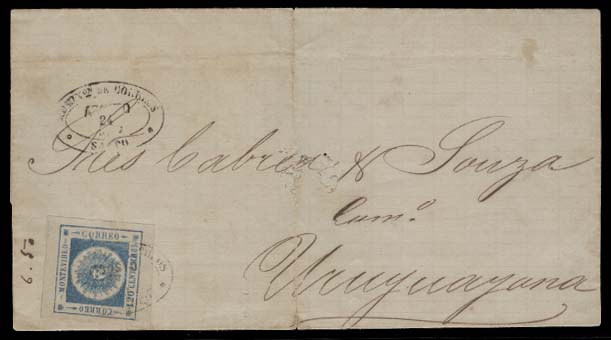 ADMON DE CORREOS
AGOSTO
24
SALTO
Sres Cabral & Souza
Cam.º
Uruguayana
6.50
CORREO
MONTEVIDEO
120 CENTESIMOS
CORREO